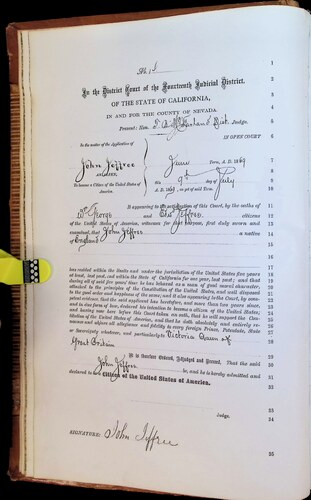 No. 18
In the District Court of the Fourteenth Judicial District.
OF THE STATE OF CALIFORNIA,
IN AND FOR THE COUNTY OF NEVADA.
Present: Hon. T. B. McFarland Dist. Judge.
IN OPEN COURT
In the matter of the Application of
John Jeffree
AN ALIEN,
To become a Citizen of the United States of America.
June Term, A. D. 1869
this 9th day of July
A. D. 1869, as yet of said Term.
It appearing to the satisfaction of this Court, by the oaths of
Wm George and Jeffree, citizens
of the United States of America, witnesses for that purpose, first duly sworn and
examined, that John Jeffree a native
of England
has resided within the limits and under the jurisdiction of the United States five years
at least, last past, and within the State of California for one year, last past; and that
during all of said five years he has behaved as a man of good moral character,
attached to the principles of the Constitution of the United States, and well disposed
to the good order and happiness of the same; and it also appearing to the Court, by competent evidence, that the said applicant has heretofore, and more than two years since,
and in due form of law, declared his intention to become a citizen of the United States;
and having now here before this Court taken an oath, that he will support the Constitution of the United States of America, and that he doth absolutely and entirely renounce and abjure all allegiance and fidelity to every foreign Prince, Potentate, State
or Sovereignty whatever, and particularly to Victoria Queen of
Great Britain
It is therefore Ordered, Adjudged and Decreed, That the said
John Jeffree be, and he is hereby admitted and
declared to be a Citizen of the United States of America.
Judge.
SIGNATURE: John Jeffree
1
2
3
4
5
6
7
8
9
10
11
12
13
14
15
16
17
18
19
20
21
22
23
24
25
26
27
28
29
30
31
32
33
34
35